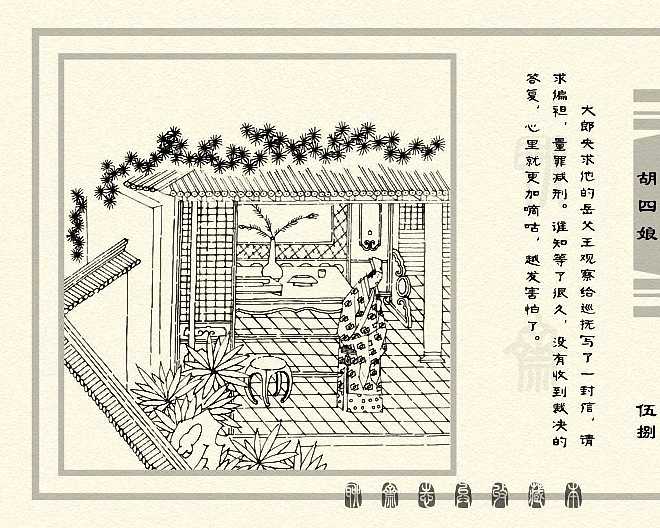 大郎央求他的岳父王观察给巡抚写了一封信，请
求偏袒，量罪减刑。谁知等了很久，没有收到裁决的
答复，心里就更加嘀咕，越发害怕了。
胡四娘
伍捌